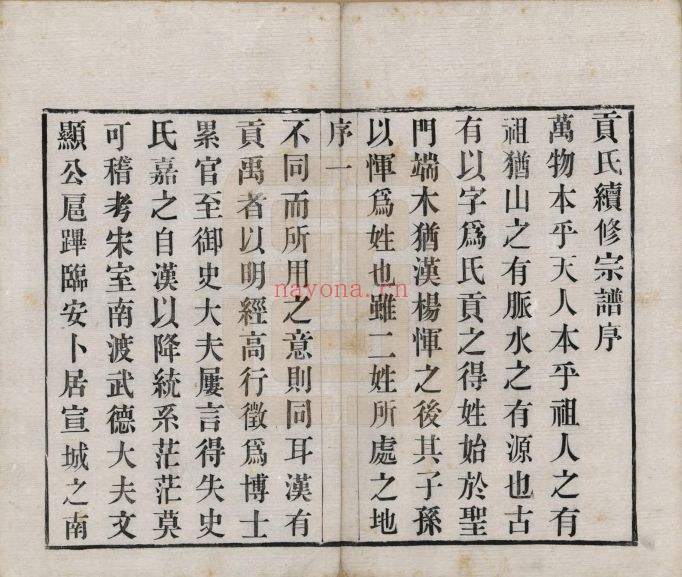 貢氏續修宗譜序
萬物本乎天人本乎祖人之有
祖猶山之有脈水之有源也古
有以字爲氏貢之得姓始於聖
門端木猶漢楊惲之後其子孫
以惲爲姓也雖二姓所處之地
序一
不同而所用之意則同耳漢有
貢禹者以明經高行徵爲博士
累官至御史大夫屢言得失史
氏嘉之自漢以降統系茫茫莫
可稽考宋室南渡武德大夫文
顯公扈蹕臨安卜居宣城之南
nayona.cn